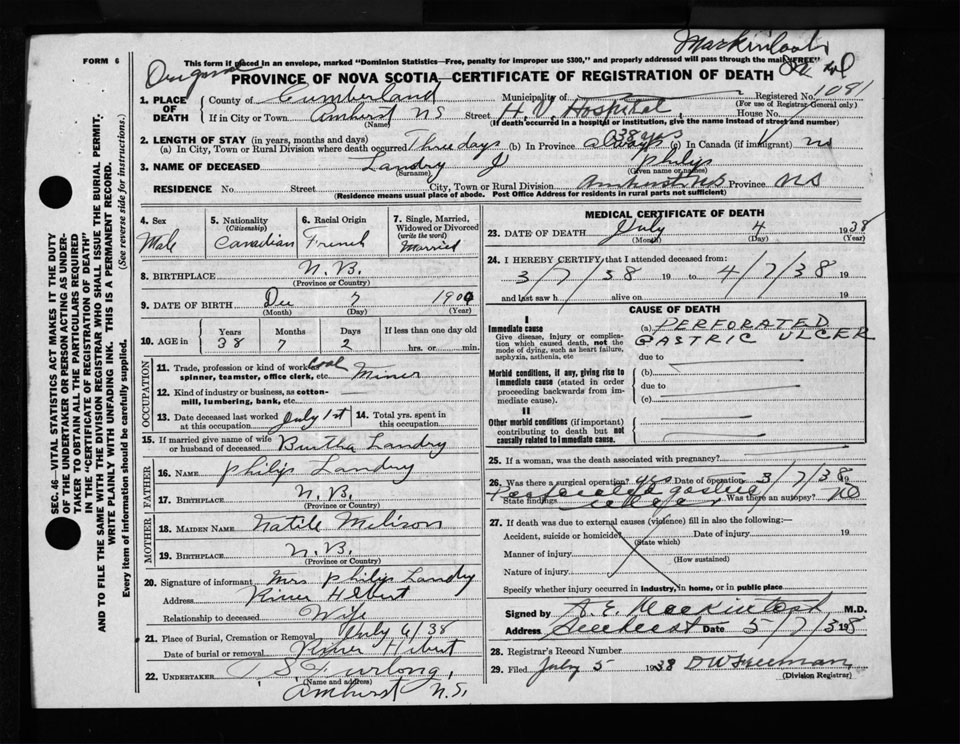 Mackintosh
FORM 6
This form if placed in an envelope, marked "Dominion Statistics—Free, penalty for improper use $300," and properly addressed will pass through the mail "FREE"
Original
PROVINCE OF NOVA SCOTIA—CERTIFICATE OF REGISTRATION OF DEATH
1. PLACE OF DEATH
County of Cumberland Municipality of Registered No. 1081
(For use of Registrar-General only)
If in City or Town Amherst NS Street H.V. Hospital House No.
(Name) (If death occurred in a hospital or institution, give the name instead of street and number)
2. LENGTH OF STAY (in years, months and days)
(a) In City, Town or Rural Division where death occurred Three days (b) In Province 38 yrs always (c) In Canada (if immigrant) no
3. NAME OF DECEASED Landry J Philip
(Surname) (Given name or names)
RESIDENCE No. Street City, Town or Rural Division Amherst NS Province NS
(Residence means usual place of abode. Post Office Address for residents in rural parts not sufficient)
SEC. 46—VITAL STATISTICS ACT MAKES IT THE DUTY
OF THE UNDERTAKER OR PERSON ACTING AS UNDER-
TAKER TO OBTAIN ALL THE PARTICULARS REQUIRED
IN THE "CERTIFICATE OF REGISTRATION OF DEATH"
AND TO FILE THE SAME WITH THE DIVISION REGISTRAR WHO SHALL ISSUE THE BURIAL PERMIT.
WRITE PLAINLY WITH UNFADING INK. THIS IS A PERMANENT RECORD.
Every item of information should be carefully supplied. (See reverse side for instructions.)
4. Sex
Male
5. Nationality
(Citizenship)
Canadian
6. Racial Origin
French
7. Single, Married,
Widowed or Divorced
(write the word)
Married
8. BIRTHPLACE N.B.
(Province or Country)
9. DATE OF BIRTH Dec 7 1900
(Month) (Day) (Year)
10. AGE in
Years Months Days If less than one day old
38 7 2 hrs. or min.
OCCUPATION
11. Trade, profession or kind of work as
spinner, teamster, office clerk, etc. Coal Miner
12. Kind of industry or business, as cotton-
mill, lumbering, bank, etc.
13. Date deceased last worked July 1st
at this occupation
14. Total yrs. spent in
this occupation
15. If married give name of wife
or husband of deceased Burtha Landry
FATHER
16. NAME Philip Landry
17. BIRTHPLACE N.B.
(Province or Country)
MOTHER
18. MAIDEN NAME Natile Melison
19. BIRTHPLACE N.B.
(Province or Country)
20. Signature of informant Mrs Philip Landry
Address River Hebert
Relationship to deceased Wife
21. Place of Burial, Cremation or Removal July 6/38
Date of burial or removal River Hebert
22. UNDERTAKER T S Furlong
(Name and address)
Amherst N.S.
MEDICAL CERTIFICATE OF DEATH
23. DATE OF DEATH July 4 1938
(Month) (Day) (Year)
24. I HEREBY CERTIFY that I attended deceased from:
3/7/38 19 to 4/7/38 19
and last saw h alive on 19
CAUSE OF DEATH
I
Immediate cause
Give disease, injury or complica-
tion which caused death, not the
mode of dying, such as heart failure,
asphyxia, asthenia, etc
(a) PERFORATED
GASTRIC ULCER
due to
Morbid conditions, if any, giving rise to
immediate cause (stated in order
proceeding backwards from im-
mediate cause).
(b)
due to
(c)
II
Other morbid conditions (if important)
contributing to death but not
causally related to immediate cause.
25. If a woman, was the death associated with pregnancy?
26. Was there a surgical operation? yes Date of operation 3/7/38
State findings Perforated gastric ulcer Was there an autopsy? NO
27. If death was due to external causes (violence) fill in also the following:—
Accident, suicide or homicide? Date of injury 19
(State which)
Manner of injury
(How sustained)
Nature of injury
Specify whether injury occurred in industry, in home, or in public place
Signed by A.E. Mackintosh M.D.
Address Amherst Date 5/7/38
28. Registrar's Record Number
29. Filed July 5 1938 DW Freeman
(Division Registrar)